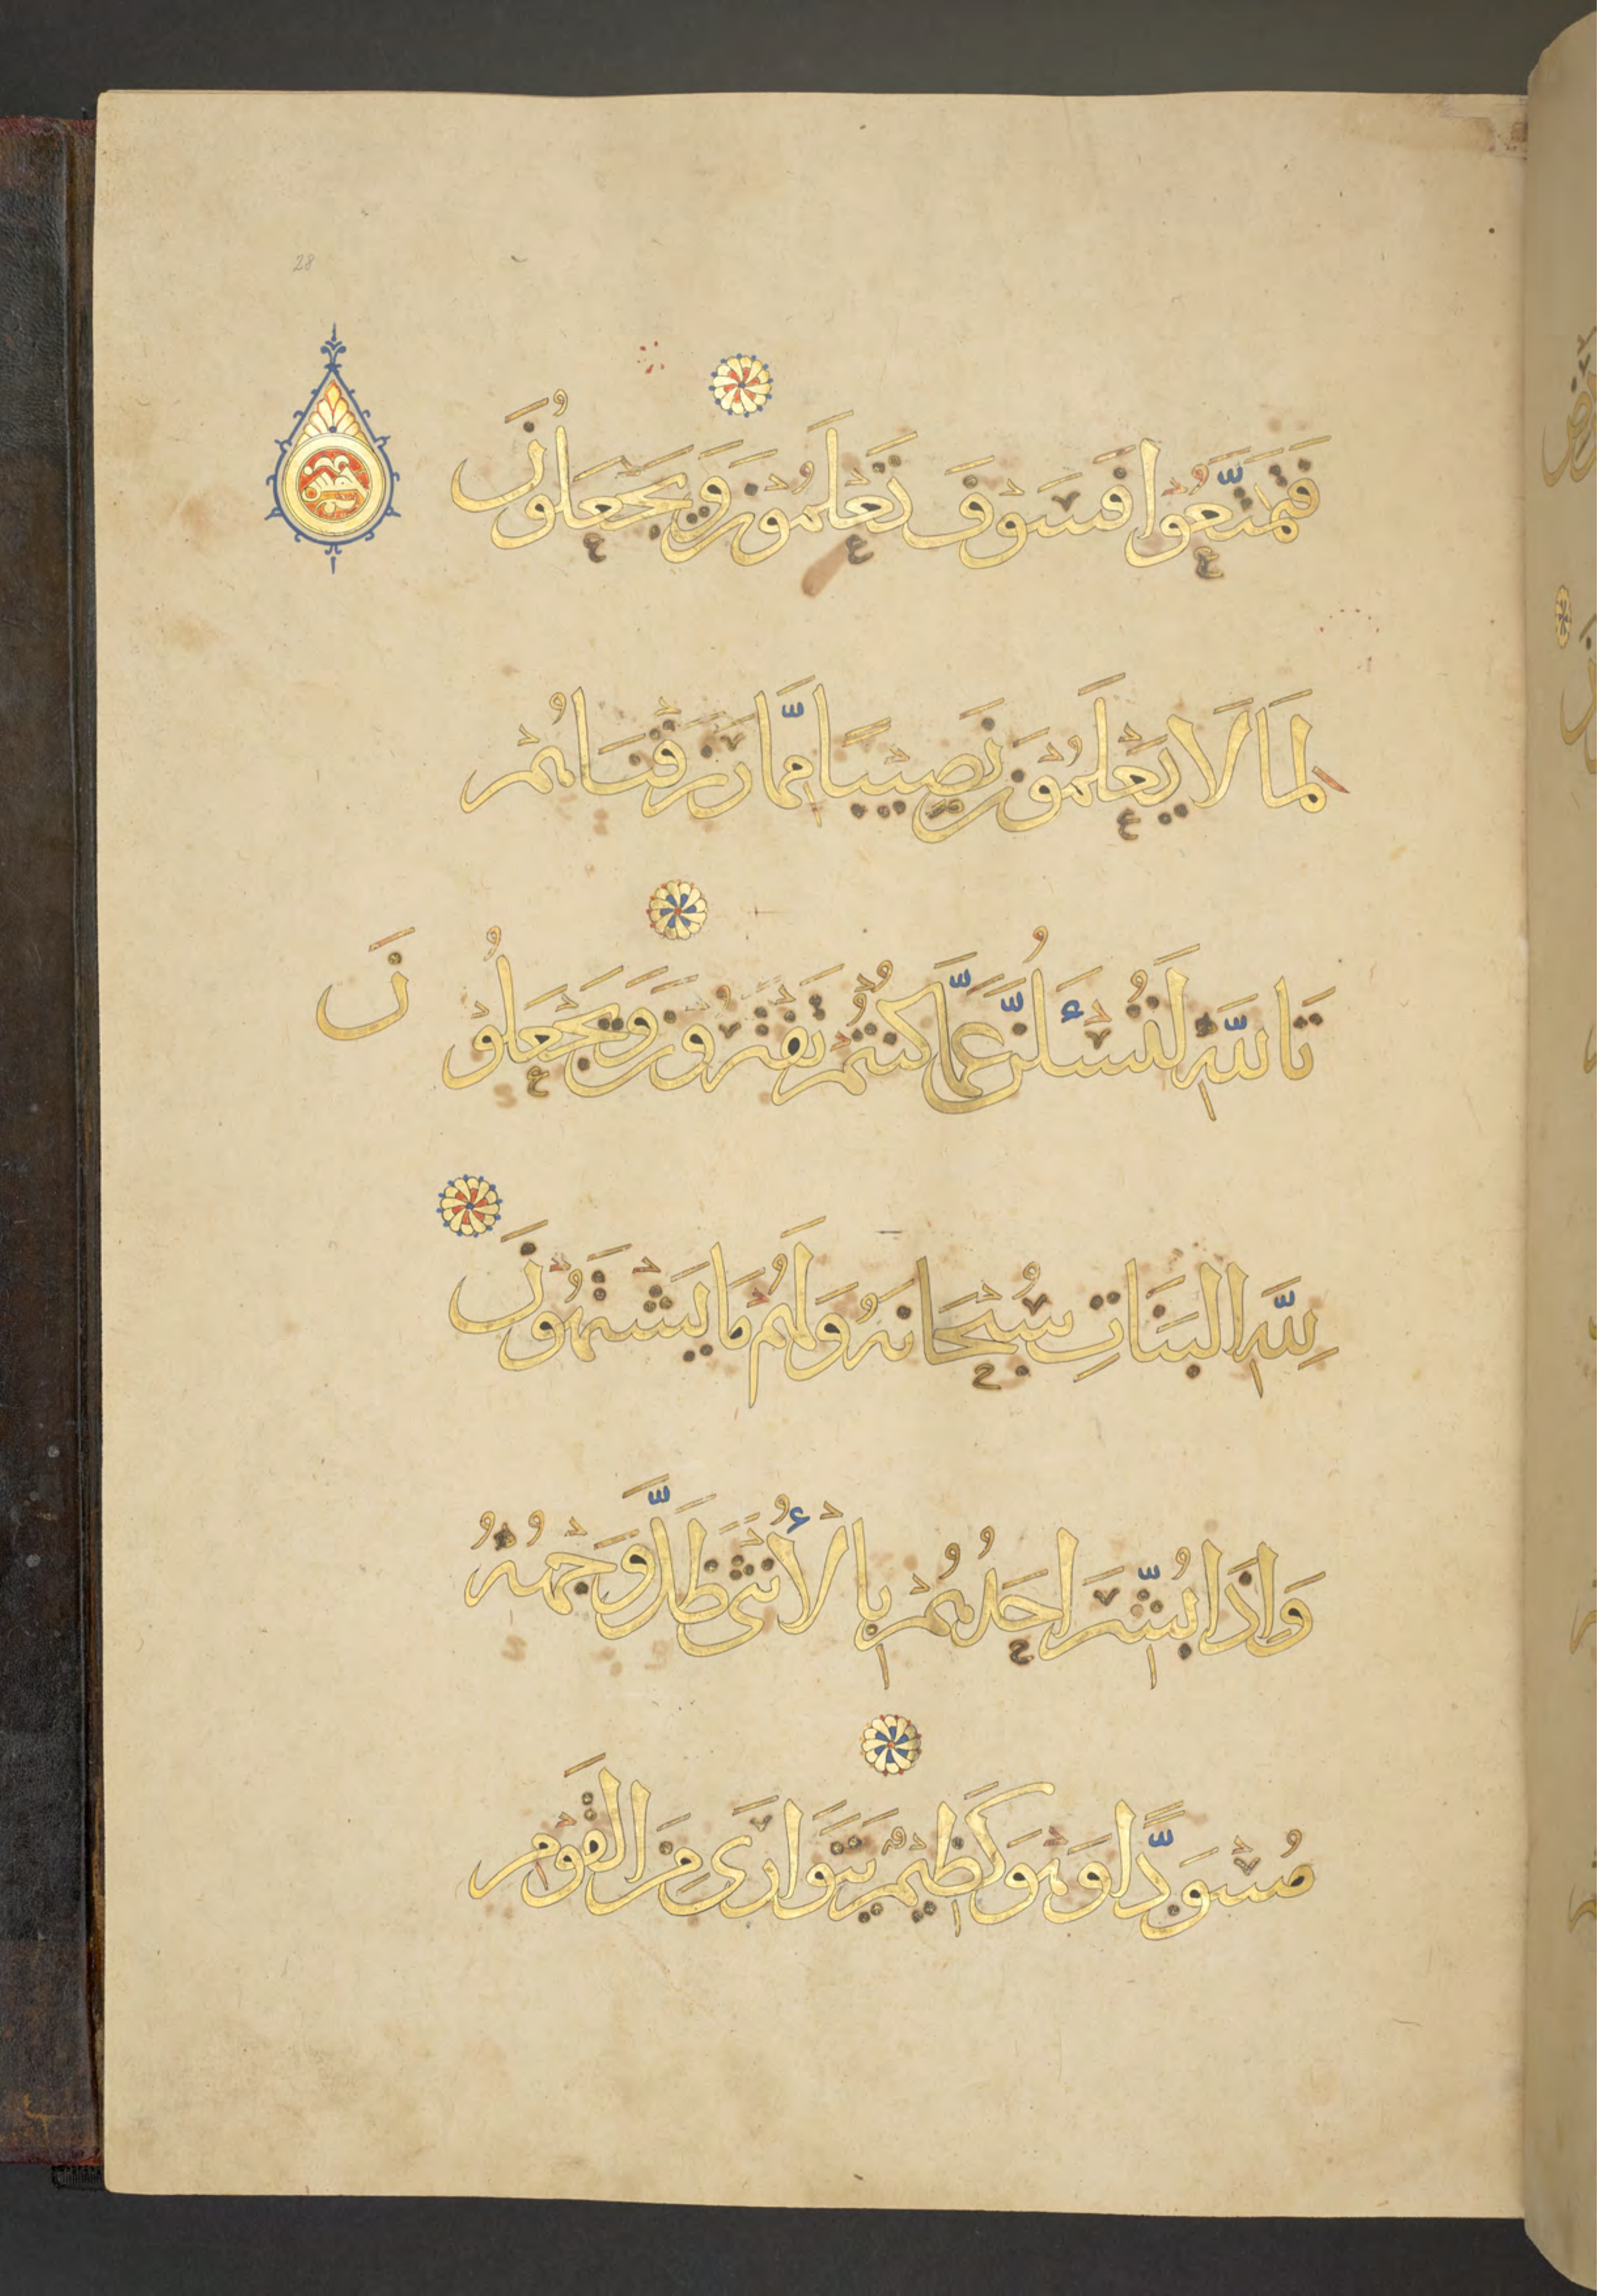 فَتَمَتَّعُوْا فَسَوْفَ تَعْلَمُوْنَ وَيَجْعَلُونَ
لِمَا لَا يَعْلَمُوْنَ نَصِيْبًا مِمَّا رَزَقْنَاهُمْ
تَاللَّهِ لَتُسْـَٔلُنَّ عَمَّا كُنْتُمْ تَفْتَرُوْنَ وَيَجْعَلُوْنَ
لِلَّهِ البَنَاتِ سُبْحَانَهُ وَلَهُمْ مَا يَشْتَهُوْنَ
وَاِذَا بُشِّرَ اَحَدُهُمْ بِالْأُنْثَى ظَلَّ وَجْهُهُ
مُسْوَدًّا وَهْوَ كَظِيْمٌ يَتَوَارَى مِنَ القَوْمِ
28